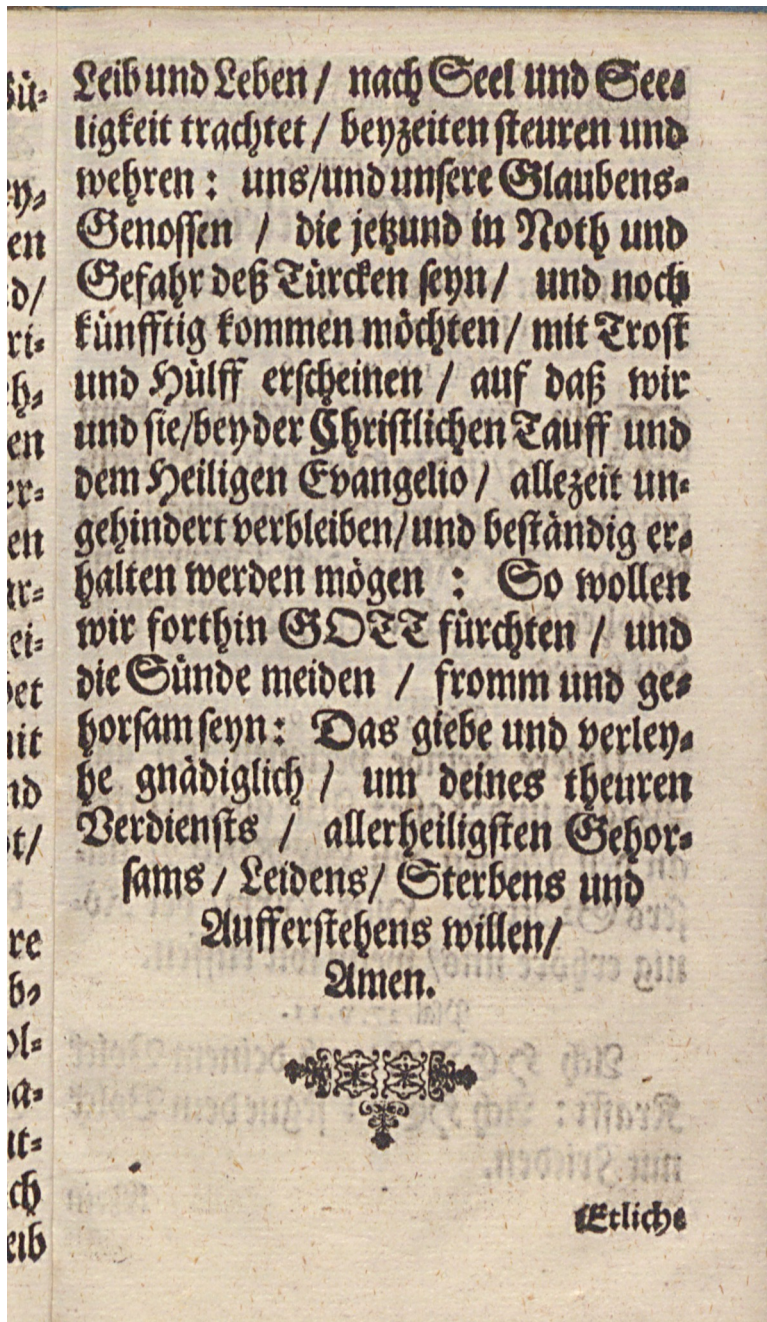 Leib und Leben / nach Seel und See-
ligkeit trachtet / beyzeiten steuren und
wehren : uns/und unsere Glaubens-
Genossen / die jetzund in Noth und
Gefahr deß Türcken seyn / und noch
künfftig kommen möchten / mit Trost
und Hülff erscheinen / auf daß wir
und sie/bey der Christlichen Tauff und
dem Heiligen Evangelio / allezeit un-
gehindert verbleiben/und beständig er-
halten werden mögen : So wollen
wir forthin GOTT fürchten / und
die Sünde meiden / fromm und ge-
horsam seyn : Das giebe und verley-
he gnädiglich / um deines theuren
Verdiensts / allerheiligsten Gehor-
sams / Leidens / Sterbens und
Aufferstehens willen/
Amen.
Etliche